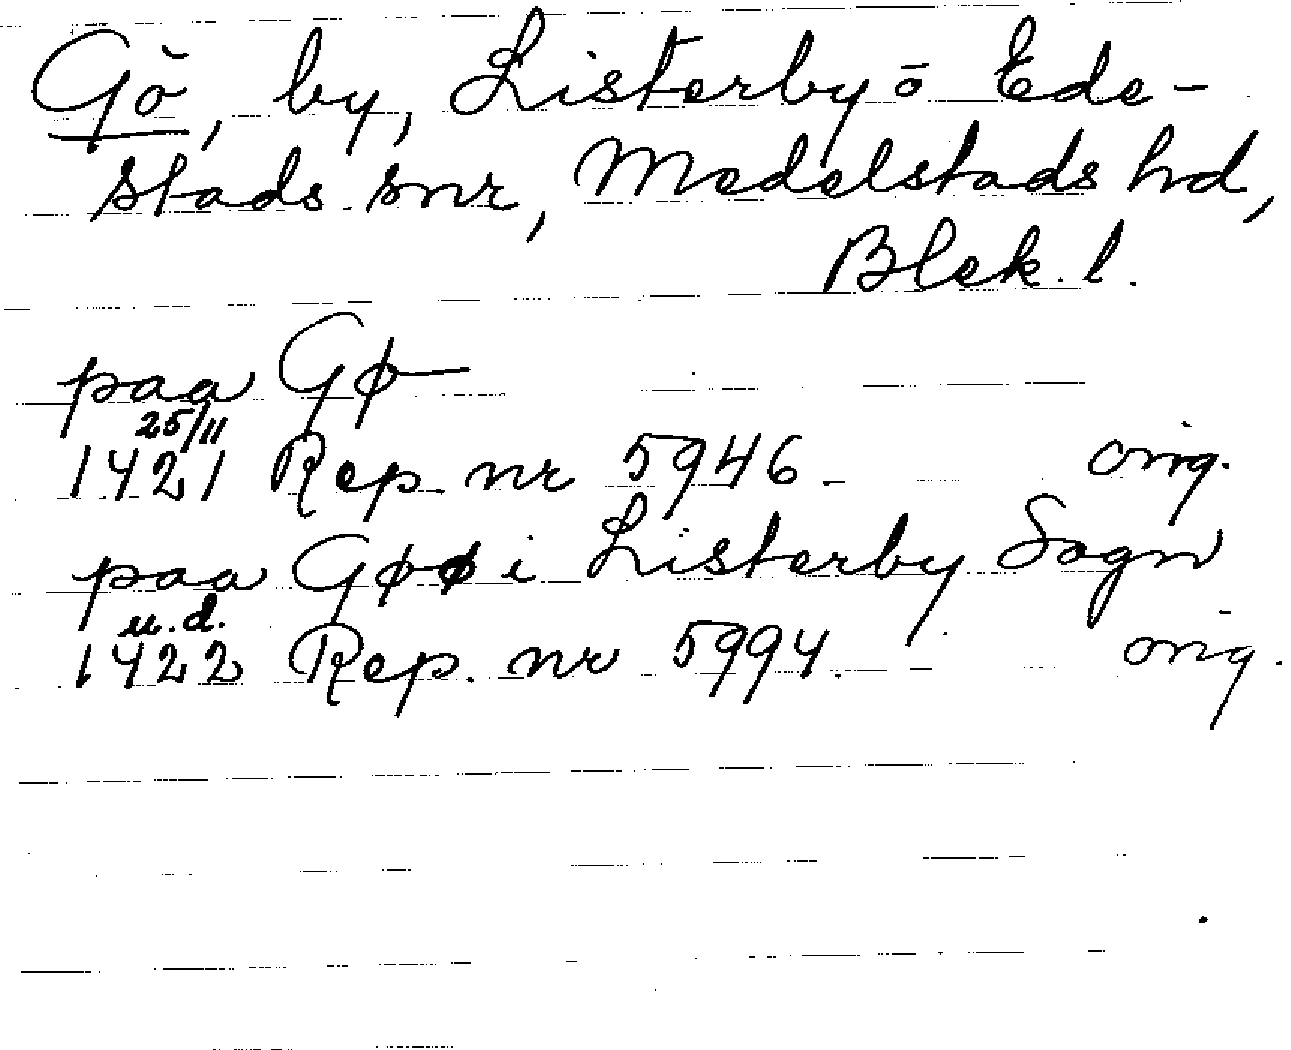 Gö, by, Listerby o Ede-
stads snr, Medelstads hd,
Blek. l.
paa Gø
25/11
1421 Rep. nr 5946 orig.
paa Gøø i Listerby Sogn
u.d.
1422 Rep. nr 5994. orig.